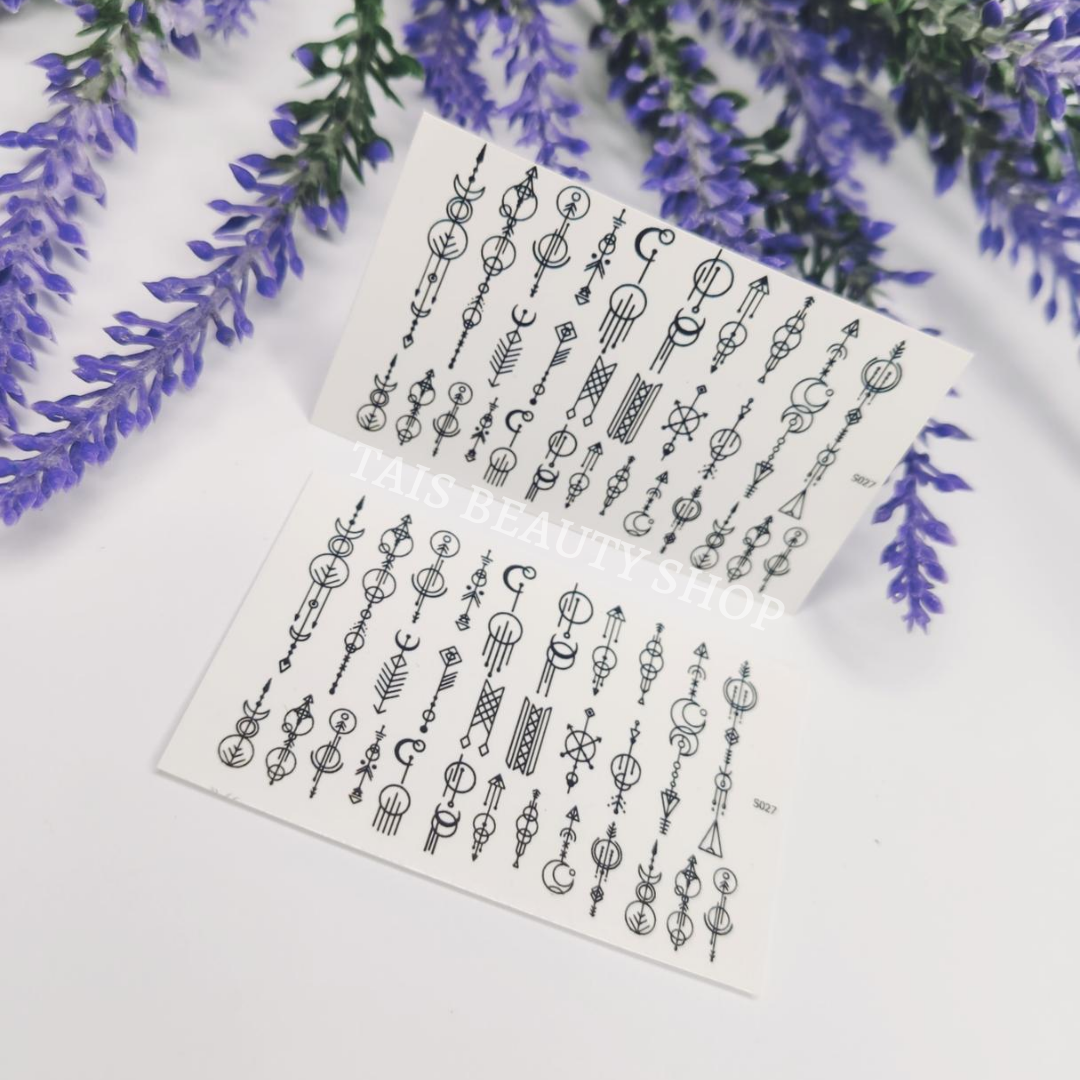 S027
TAIS BEAUTY SHOP
S027